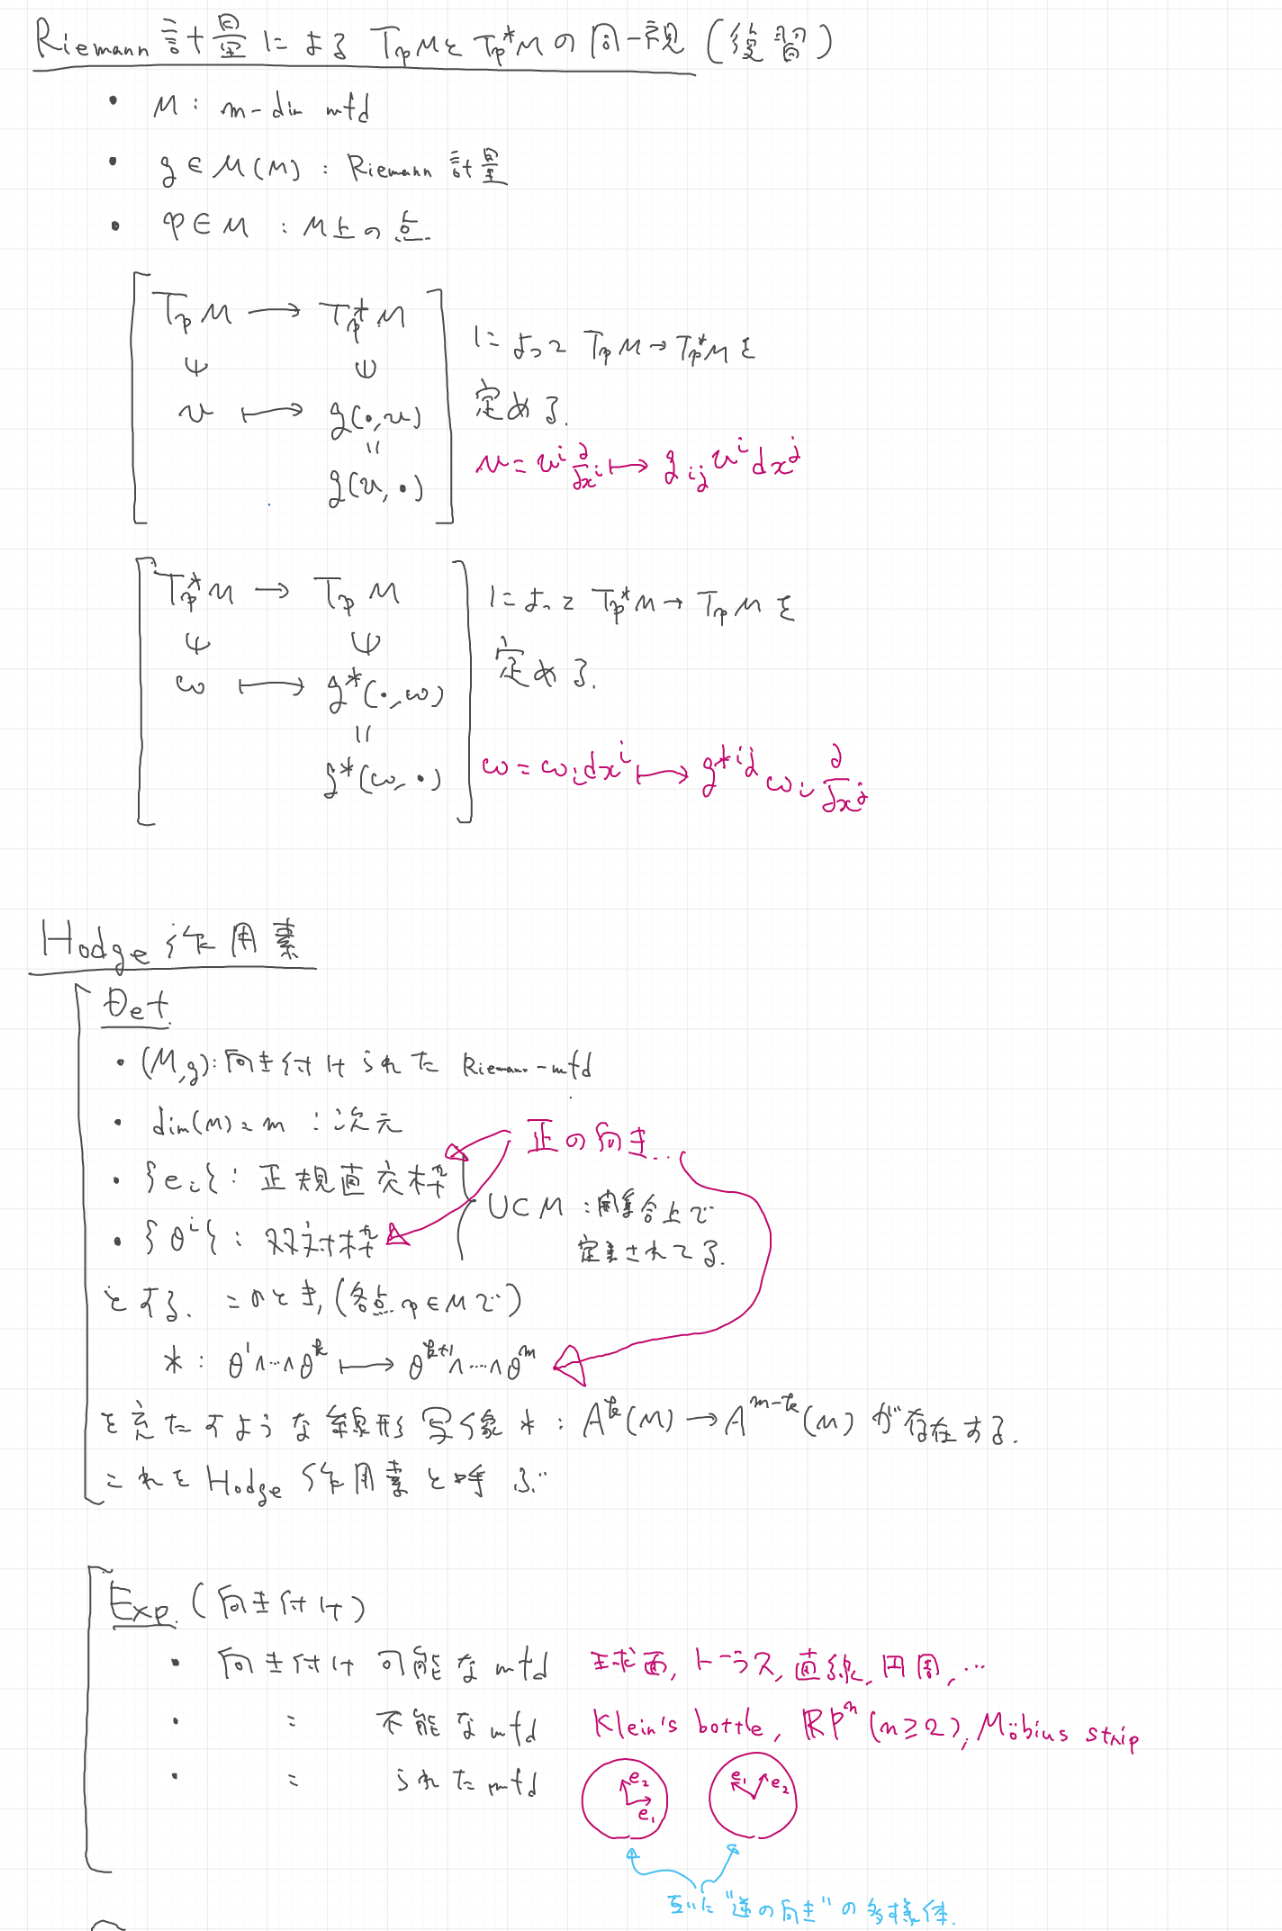 Riemann 計量による TpMとTp*Mの同一視 (復習)
• M : m-dim mfd
• g ∈ M(M) : Riemann 計量
• p ∈ M : M上の点.
TpM → Tp*M
ψ ψ
v ↦ g(•,v)
=
g(v,•)
によって TpM → Tp*M を
定める.
v = v^i ∂/∂x^i ↦ g_ij v^i dx^j
Tp*M → TpM
ψ ψ
ω ↦ g*(•,ω)
=
g*(ω,•)
によって Tp*M → TpM を
定める.
ω = ω_i dx^i ↦ g*^ij ω_i ∂/∂x^j
Hodge 作用素
Def.
• (M,g): 向き付けられた Riemann-mfd
• dim(M) = m : 次元
正の向き...
• {e_i} : 正規直交枠
• {θ^i} : 双対枠
U⊂M : 開集合上で
定義されてる.
とする. このとき, (各点 p∈M で)
* : θ^1∧…∧θ^k ↦ θ^k+1∧…∧θ^m
を充たすような線形写像 * : A^k(M) → A^m-k(M) が存在する.
これを Hodge 作用素と呼ぶ.
Exp. (向き付け)
• 向き付け 可能な mfd 球面, トーラス, 直線, 円周, …
• 〃 不能な mfd Klein's bottle, RP^n (n≥2), Möbius strip
• 〃 られた mfd
e_2 e_1 e_1 e_2
互いに "逆の向き" の多様体.